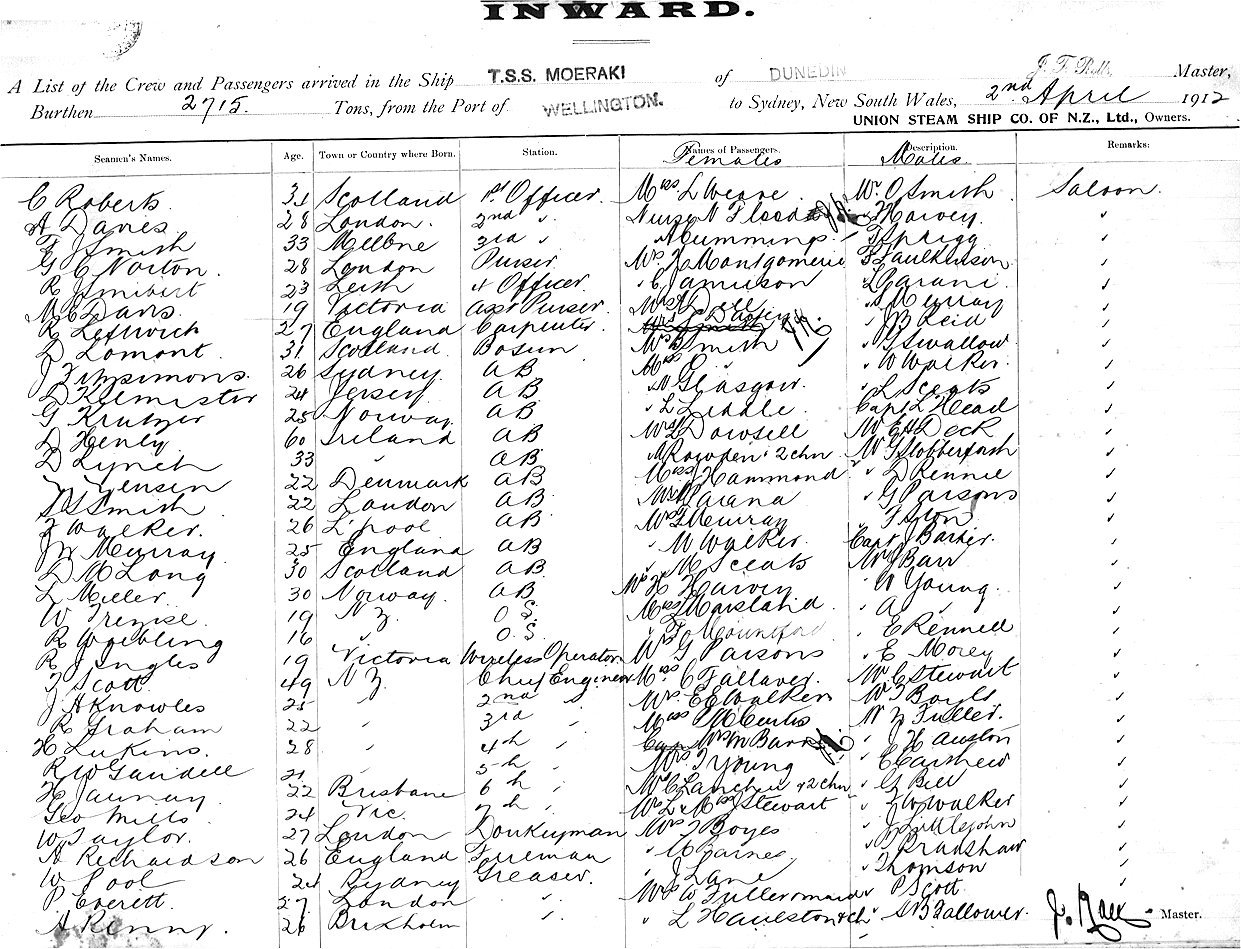 INWARD.
A List of the Crew and Passengers arrived in the Ship T.S.S. MOERAKI of DUNEDIN Master,
Burthen 2715. Tons, from the Port of WELLINGTON. to Sydney, New South Wales, 2nd April 1912
UNION STEAM SHIP CO. OF N.Z., Ltd., Owners.
Seamen's Names. Age. Town or Country where Born. Station. Names of Passengers. Description. Remarks:
Females Males
C Roberts 31 Scotland 1st Officer Miss L Weave Mr O Smith Saloon
A Davies 28 London 2nd " Nurse N Flood " Harvey "
F J Smith 33 Melbne 3rd " A Cummings " F Sprigg "
G C Norton 28 London Purser Mrs Montgomerie F Faulkinson "
R Smibert 23 Leith 4 Officer " C Jamieson "
M C Davis 19 Victoria asst Purser Mrs Dell " Murray "
R Leftwich 27 England Carpenter " J B Reid "
D Lomont 31 Scotland Bosun Smith " G Swallow "
J Fitzsimons 26 Sydney AB Miss " W Walker "
D Kilmister 24 Jersey AB " N Glasgow " L Sceats "
G Krutzer 25 Norway AB " L Liddle Capt L Head "
D Henly 60 Ireland AB Mrs Dowsell Mr E H Deck "
D Lynch 33 " AB Rowden & 2 chn "
Jensen 22 Denmark AB Miss J Hammond " D Rennie "
S Smith 22 London AB Parana " G Parsons "
Walker 26 L'pool AB Mrs Murray "
J W Murray 25 England AB " M Walker Capt J Barker "
D M Long 30 Scotland AB " M Sceats Mr J Barr "
L Miller 30 Norway AB Mrs H Harvey W Young "
W Trenise 19 NZ O.S. Miss Marsland A " "
R Woebling 16 " O.S. " F Mountford " E Rennell "
R J Ingles 19 Victoria Wireless Operator Mrs G Parsons " E Morey "
Scott 49 NZ Chief Engineer Miss C Fallaver Mr C Stewart "
J H Knowles 25 " 2nd " Mrs E E Walker Mr T Boyes "
R Graham 22 " 3rd " Miss McCurtis Fuller "
H Lukins 28 " 4th " Mrs M Barr " J Hauston "
R W Gaudell 21 " 5th " Mrs J Young "
H Jaunay 22 Brisbane 6th " & 2 chn " G Bell "
Geo Mills 24 Vic. 7th " Stewart " Walker "
W Taylor 27 London Donkeyman Mrs T Boyes " J Littlejohn "
A Richardson 26 England Foreman " Barnes " Bradshaw "
W Pool 24 Sydney Greaser " J Lane " Thomson "
P Everett 27 London " Mrs W Fuller & maid " P Scott
A Kenny 26 Brixholm " " L Haulston & ch " Fallower Master.